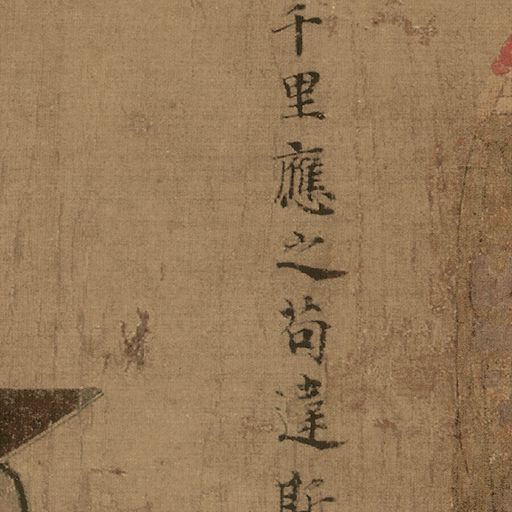 千里應之苟違斯